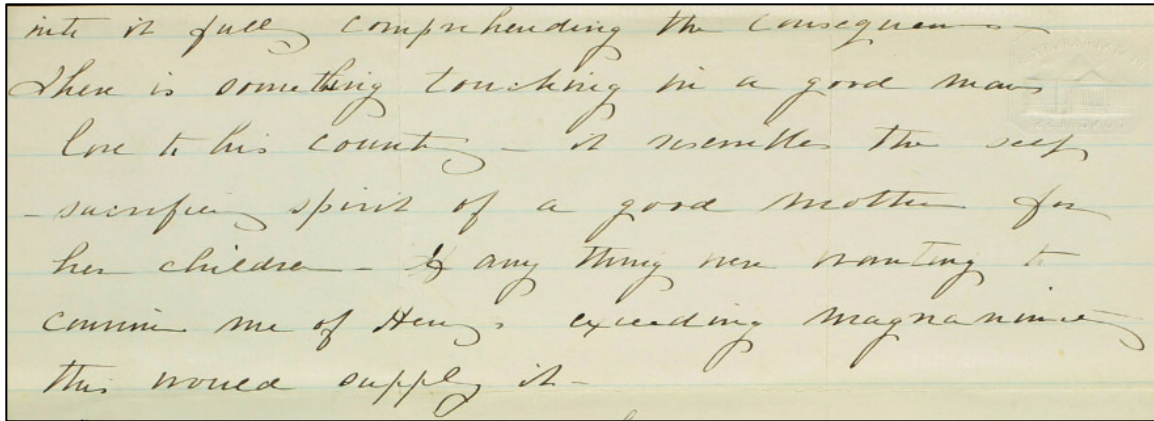 into it fully comprehending the consequences
There is something touching in a good mans
love to his country - it resembles the self
- sacrificing spirit of a good mother for
her children - If any thing were wanting to
convince me of Henry's exceeding magnanimity
this would supply it -